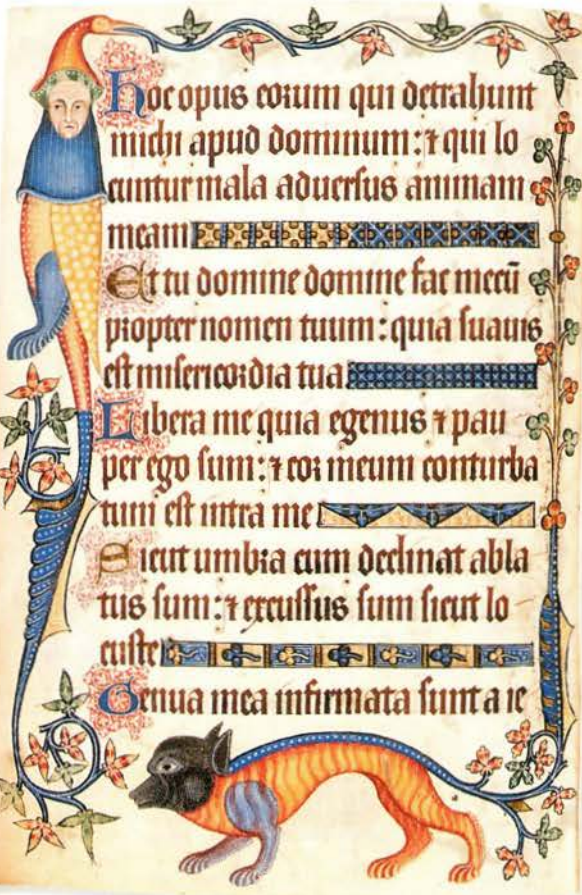 Hoc opus eorum qui detrahunt
michi apud dominum: ⁊ qui lo
cuntur mala aduersus animam
meam
Et tu domine domine fac mecū
propter nomen tuum: quia suauis
est misericordia tua
Libera me quia egenus ⁊ pau
per ego sum: ⁊ cor meum conturba
tum est intra me
Sicut umbra cum declinat abla
tus sum: ⁊ excussus sum sicut lo
custe
Genua mea infirmata sunt a ie